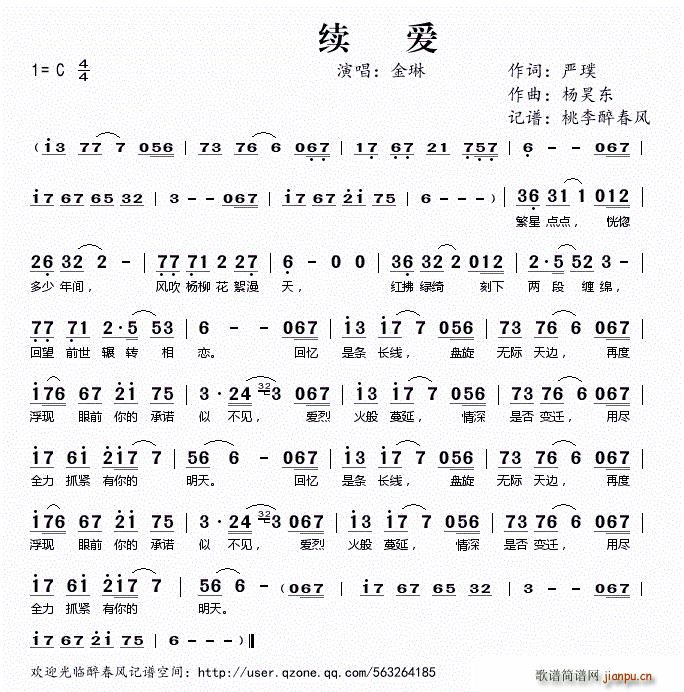 续 爱
1=C 4/4 演唱：金琳 作词：严璞
作曲：杨昊东
记谱：桃李醉春风
（i3 77 7 056 | 73 76 6 067 | 17 67 21 757 | 6 - - 067 |
i7 67 65 32 | 3 - - 067 | i7 67 2i 75 | 6 - - - ）| 36 31 1 012
繁星 点点， 恍惚
26 32 2 - | 77 71 2 27 | 6 - 0 0 | 36 32 2 012 | 2·5 52 3 - |
多少 年间， 风吹 杨柳 花 絮漫 天， 红拂 绿绮 刻下 两 段 缠绵，
77 71 2·5 53 | 6 - - 067 | i3 i7 7 056 | 73 76 6 067 |
回望 前世 辗 转 相 恋。 回忆 是条 长线， 盘旋 无际 天边， 再度
i76 67 2i 75 | 3·24 32 3 067 | i3 i7 7 056 | 73 76 6 067 |
浮现 眼前 你的 承诺 似 不见， 爱烈 火般 蔓延， 情深 是否 变迁， 用尽
i7 6i 2i7 7 | 56 6 - 067 | i3 i7 7 056 | 73 76 6 067 |
全力 抓紧 有你的 明天。 回忆 是条 长线， 盘旋 无际 天边， 再度
i76 67 2i 75 | 3·24 32 3 067 | i3 i7 7 056 | 73 76 6 067 |
浮现 眼前 你的 承诺 似 不见， 爱烈 火般 蔓延， 情深 是否 变迁， 用尽
i7 6i 2i7 7 | 56 6 - （067 | i7 67 65 32 | 3 - - 067 |
全力 抓紧 有你的 明天。
i7 67 2i 75 | 6 - - - ）‖
欢迎光临醉春风记谱空间：http://user.qzone.qq.com/563264185
歌谱简谱网
jianpu.cn